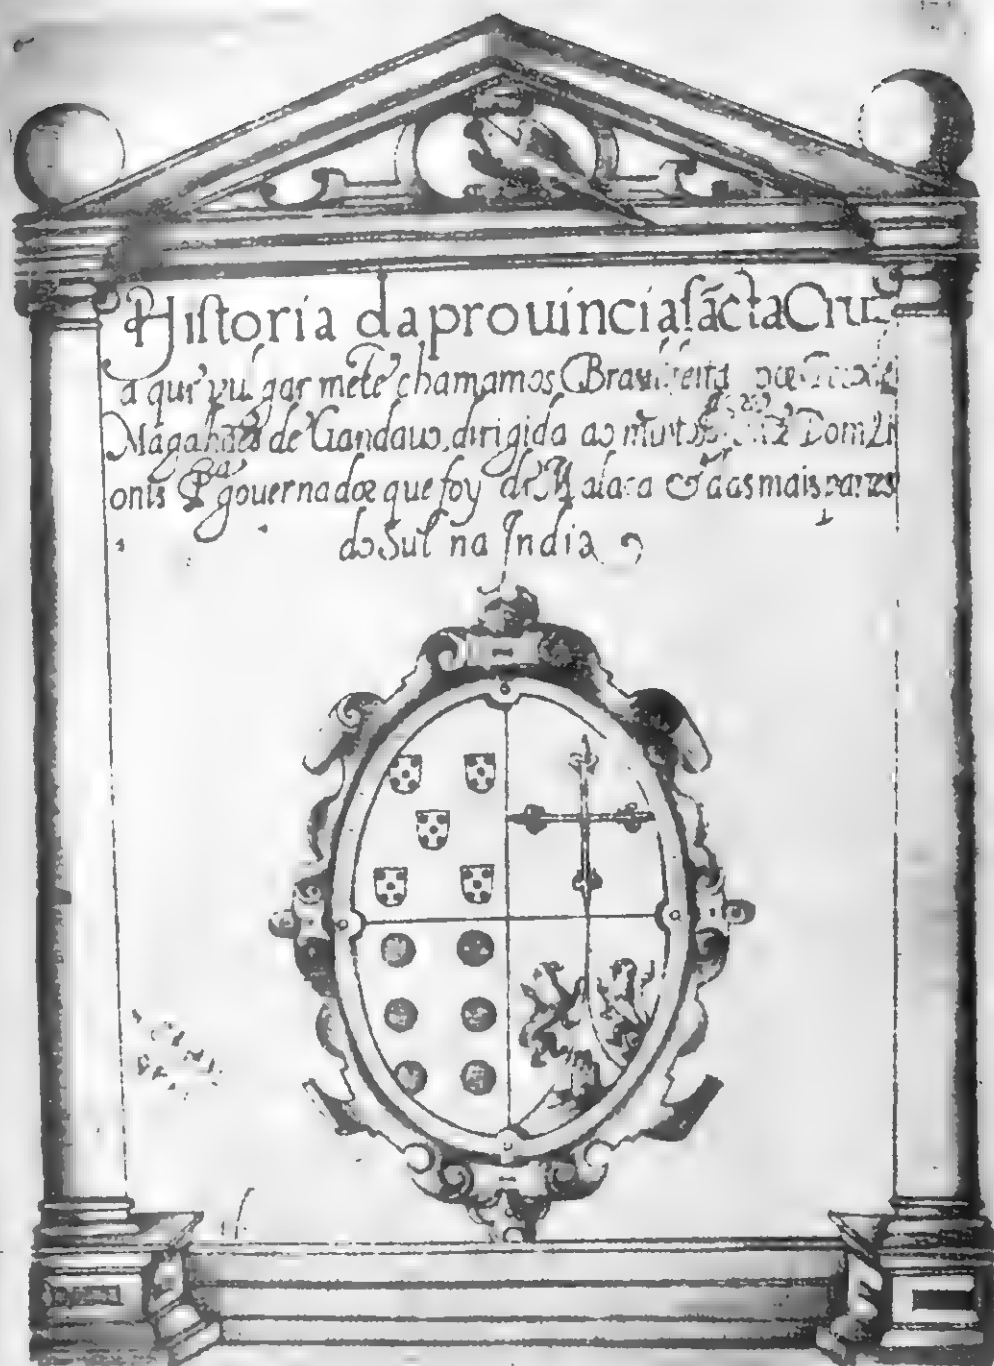 Hiſtoria da prouincia ſãcta Cru
a qui vulgar mẽte chamamos Braſil feita por
Magalhães de Gandauo, dirigida ao muito Dom Li
onis P gouernador que foy de Malaca & das mais partes
do Sul na India